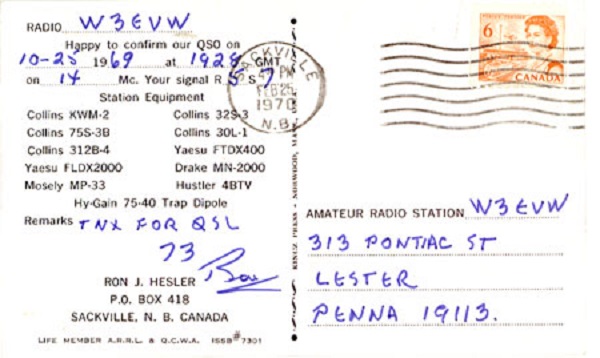 RADIO W3EVW
Happy to confirm our QSO on
10-25 1969 at 1928 GMT
on 14 Mc. Your signal R 5 S 7
Station Equipment
Collins KWM-2 Collins 32S-3
Collins 75S-3B Collins 30L-1
Collins 312B-4 Yaesu FTDX400
Yaesu FLDX2000 Drake MN-2000
Mosely MP-33 Hustler 4BTV
Hy-Gain 75-40 Trap Dipole
Remarks TNX FOR QSL
73 Ron
RON J. HESLER
P.O. BOX 418
SACKVILLE, N. B. CANADA
LIFE MEMBER A.R.R.L. & Q.C.W.A. ISSB #7301
SACKVILLE
PM
FEB 25
1970
N.B.
KINGZ PRESS - NORWOOD,
6
CANADA
AMATEUR RADIO STATION W3EVW
313 PONTIAC ST
LESTER
PENNA 19113.